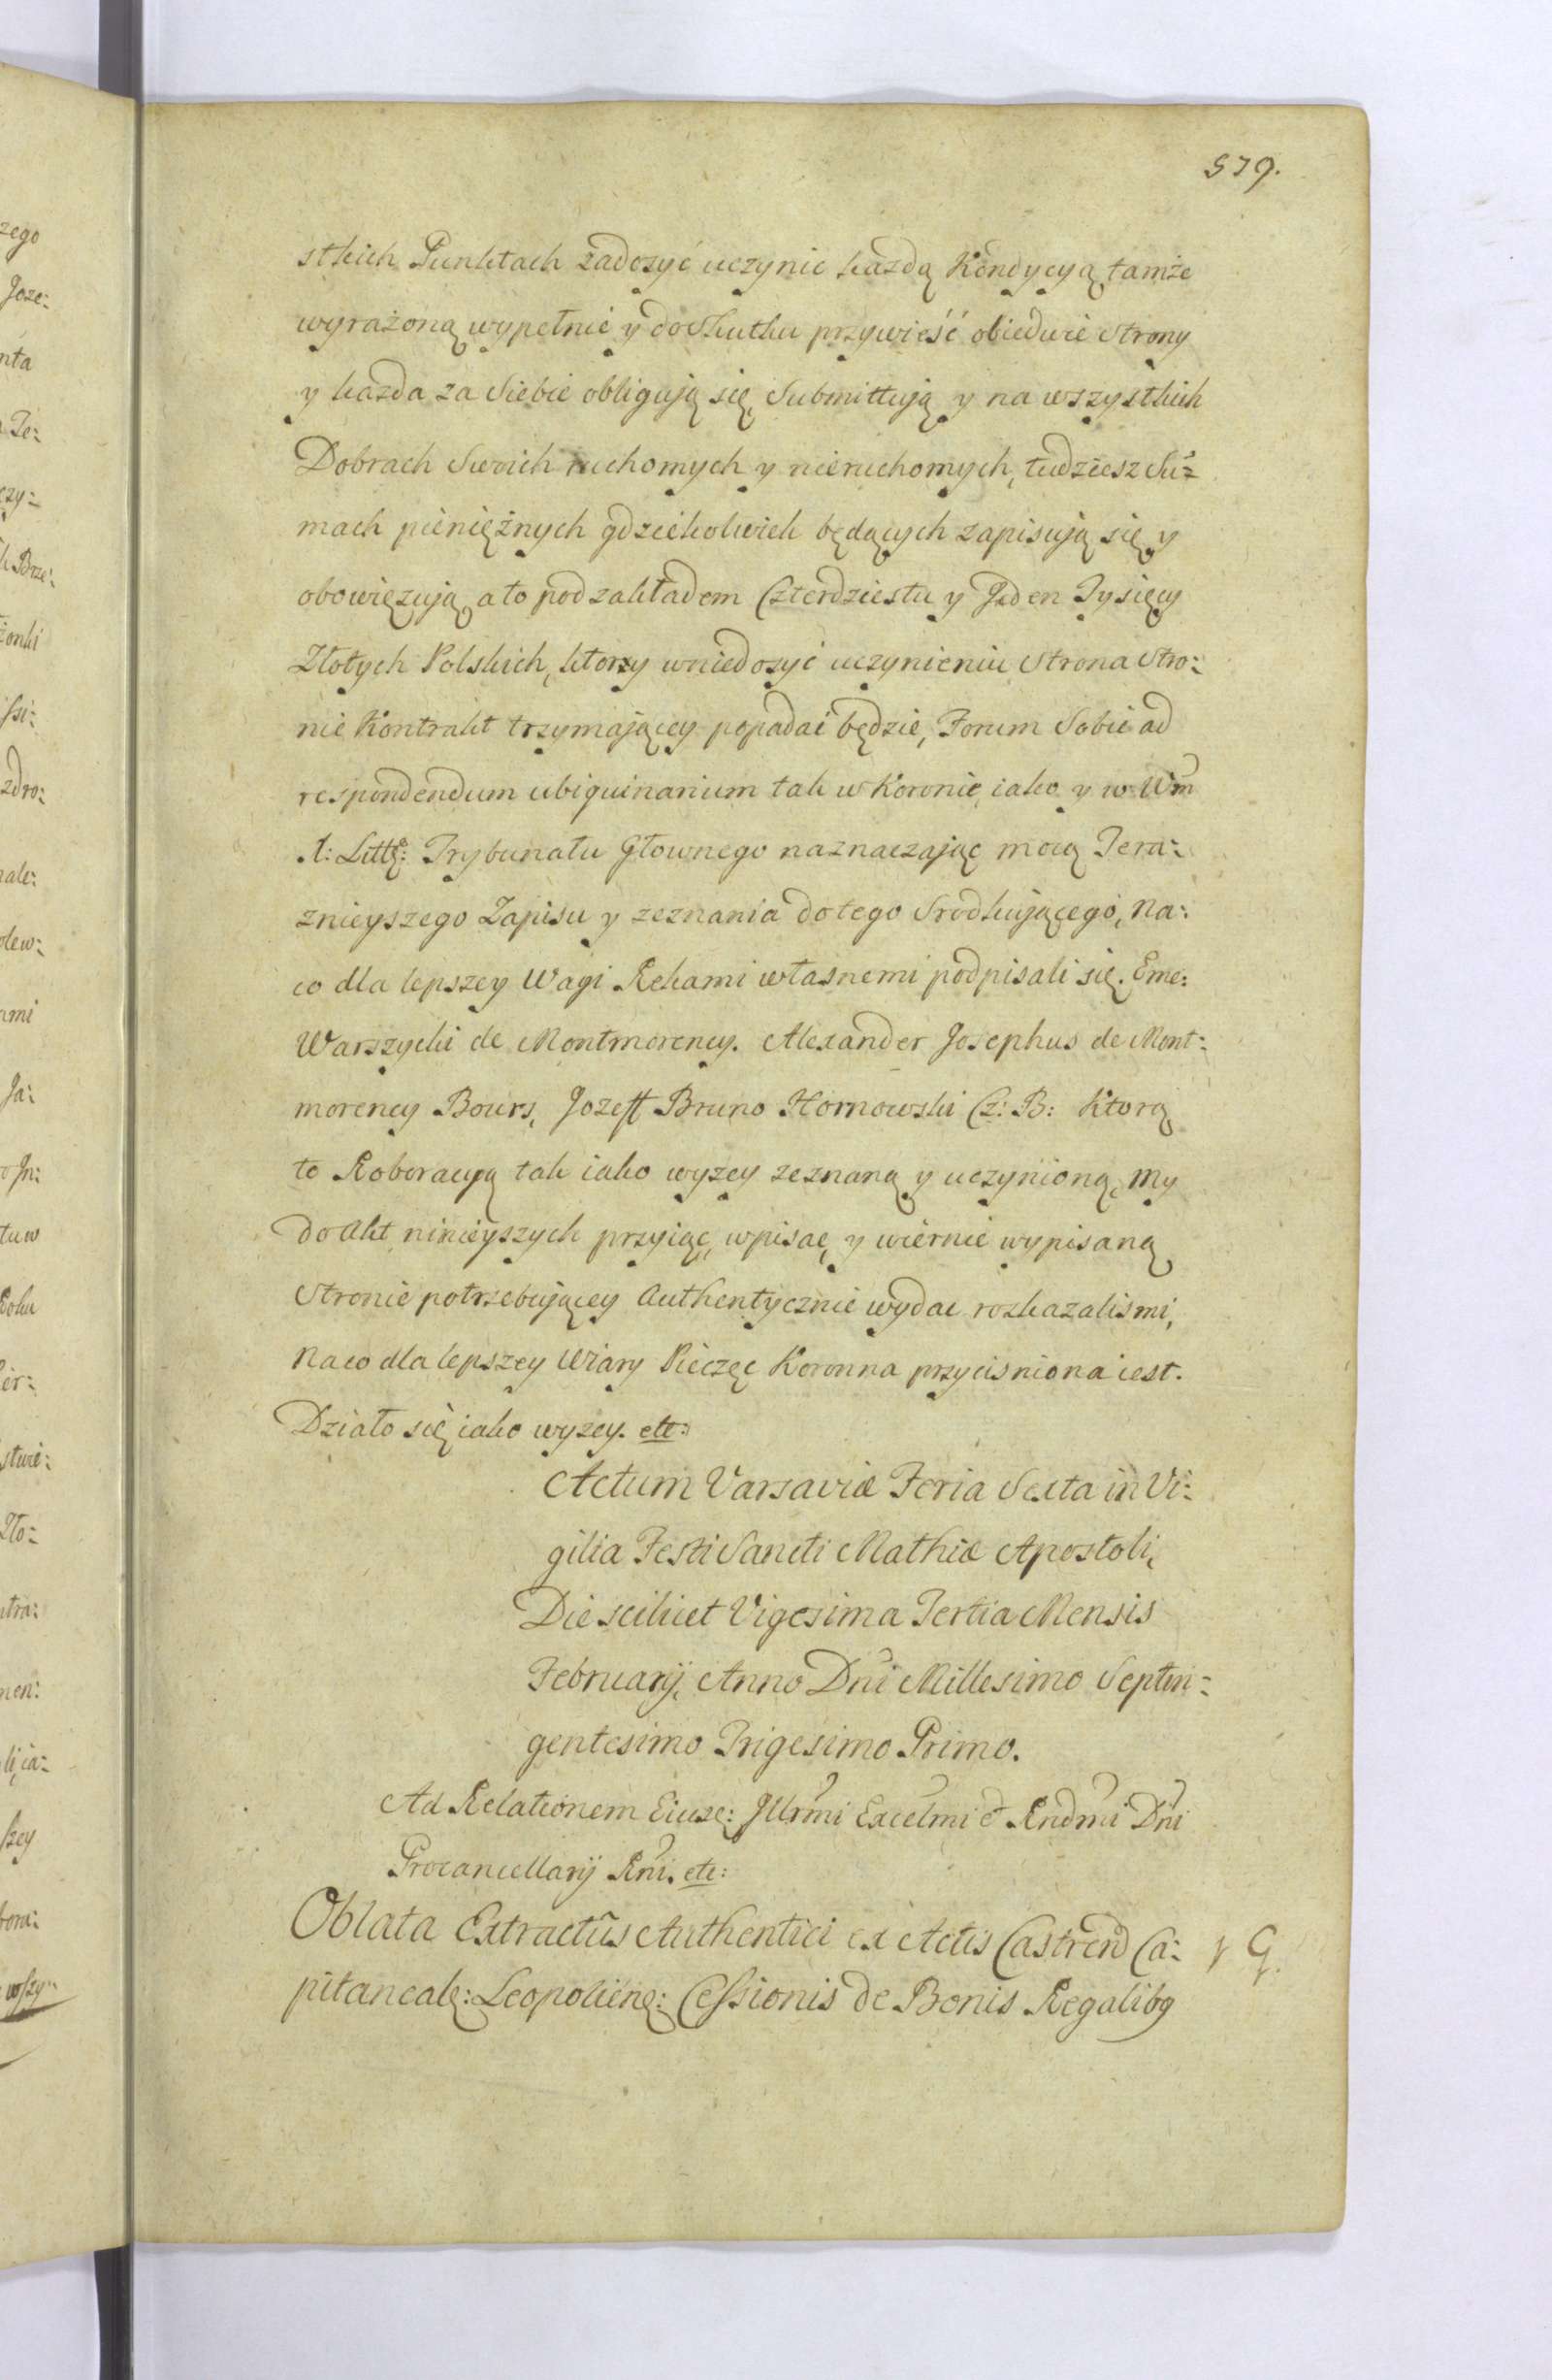 579.
stkich Punktach zadosyć uczynic kazdą Kondycyą tamże
wyrażoną wypełnić y do Skutku przywieść obiedwie Strony
y kazda za Siebie obligują się Submittują y na wszystkich
Dobrach Swoich ruchomych y nieruchomych, tudziesz Su:
mach pieniężnych gdziekolwiek będących zapisują się y
obowięzują, a to pod zakładem Czterdziestu y Jeden Tysięcy
Złotych Polskich, ktory wniedosyć uczynieniu Strona Stro:
nie Kontrakt trzymającey popadać będzie, Forum Sobie ad
respondendum ubiquinarium tak w Koronie iako y w Wm
X: Littę: Trybunału Głownego naznaczając mocą Tera:
znieyszego Zapisu y zeznania do tego Srodkującego, Na:
co dla lepszey Wagi Rękami własnemi podpisali się. Eme:
Warszycki de Montmorency. Alexander Josephus de Mont:
morency Bours, Jozeff Bruno Hornowski Cz: B: Ktorą
to Roboracyą tak iako wyzey zeznaną y uczynioną, my
do Akt ninieyszych przyiąc, wpisac, y wiernie wypisaną
Stronie potrzebującey Authentycznie wydac rozkazalismi,
Na co dla lepszey Wiary Pieczęc Koronna przycisniona iest.
Działo się iako wyzey. etc:
Actum Varsaviæ Feria Sexta in Vi:
gilia Festi Sancti Mathiæ Apostoli,
Die scilicet Vigesima Tertia Mensis
Februarij, Anno Dni Millesimo Septin:
gentesimo Trigesimo Primo.
Ad Relationem Eiusz: Jllrmi Excelmi et Rndmi Dni
Procancellarij Rni. etc:
Oblata Extractûs Authentici ex Actis Castren Ca:
pitanealz: Leopolienz: Cessionis de Bonis Regalibg